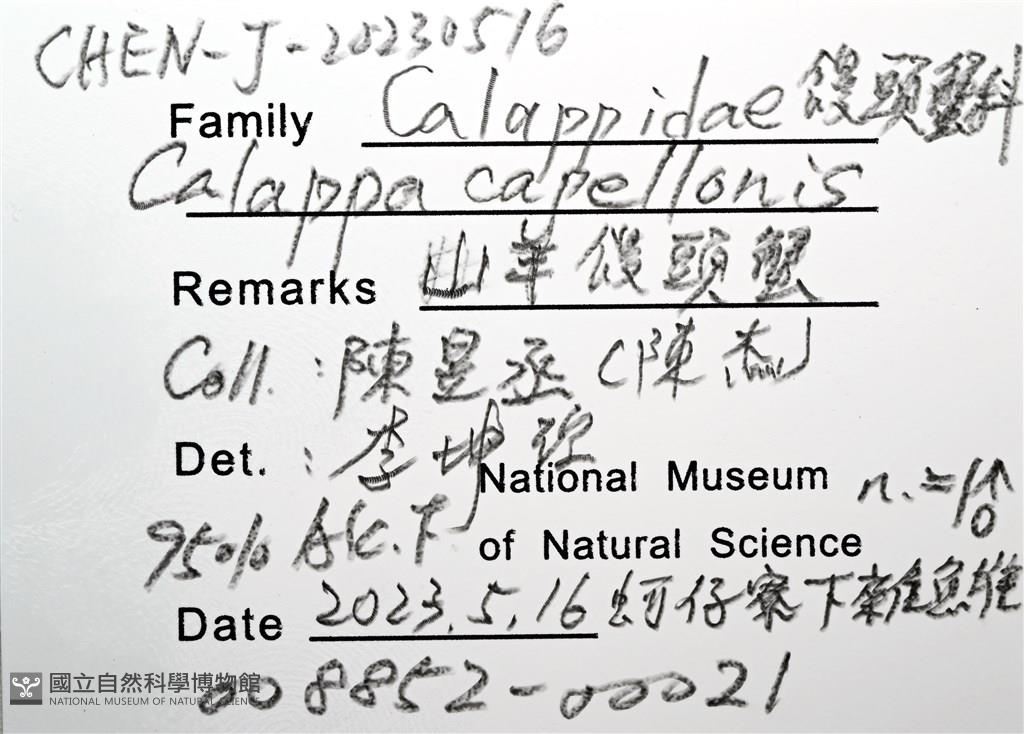 CHEN-J-20230516
Family Calappidae 饅頭蟹科
Calappa capellonis
Remarks 山羊饅頭蟹
Coll. : 陳昱丞 (陳杰)
Det. : 李坤
National Museum n. = 1
95% Alc.
of Natural Science
Date 2023.5.16 蚵仔寮下雜魚堆
008852-00021
國立自然科學博物館
NATIONAL MUSEUM OF NATURAL SCIENCE